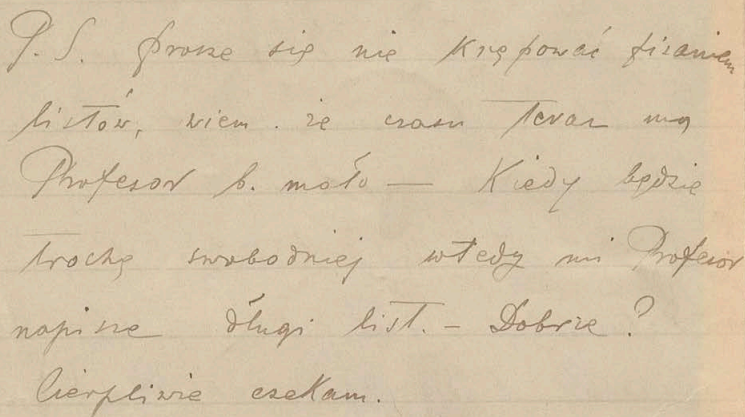 P.S. Proszę się nie krępować pisaniem
listów, wiem że czasu teraz ma
Profesor b. mało — Kiedy będzie
trochę swobodniej wtedy mi Profesor
napisze długi list. – Dobrze?
Cierpliwie czekam.